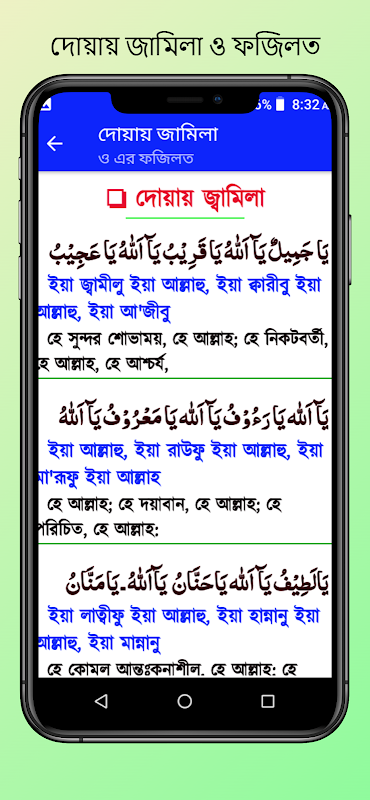 দোয়ায় জামিলা ও ফজিলত
6% 8:32 A
দোয়ায় জামিলা
ও এর ফজিলত
❏ দোয়ায় জ্বামিলা
يَا جَمِيلُ يَآ اَللهُ يَا قَرِيْبُ يَآ اَللهُ يَا عَجِيْبُ
ইয়া জ্বামীলু ইয়া আল্লাহু, ইয়া ক্বারীবু ইয়া
আল্লাহু, ইয়া আ'জীবু
হে সুন্দর শোভাময়, হে আল্লাহ; হে নিকটবর্তী,
হে আল্লাহ, হে আশ্চর্য,
يَآ اَللهُ يَا رَءُوْفُ يَآ اَللهُ يَا مَعْرُوْفُ يَآ اَللهُ
ইয়া আল্লাহু, ইয়া রাউফু ইয়া আল্লাহু, ইয়া
মা'রূফু ইয়া আল্লাহ
হে আল্লাহ; হে দয়াবান, হে আল্লাহ; হে
পরিচিত, হে আল্লাহ:
يَالَطِيْفُ يَآ اَللهُ يَاحَنَّانُ يَآ اَللهُ۔ يَامَنَّانُ
ইয়া লাত্বীফু ইয়া আল্লাহু, ইয়া হান্নানু ইয়া
আল্লাহু, ইয়া মান্নানু
হে কোমল আন্তঃকনাশীল. হে আল্লাহ: হে